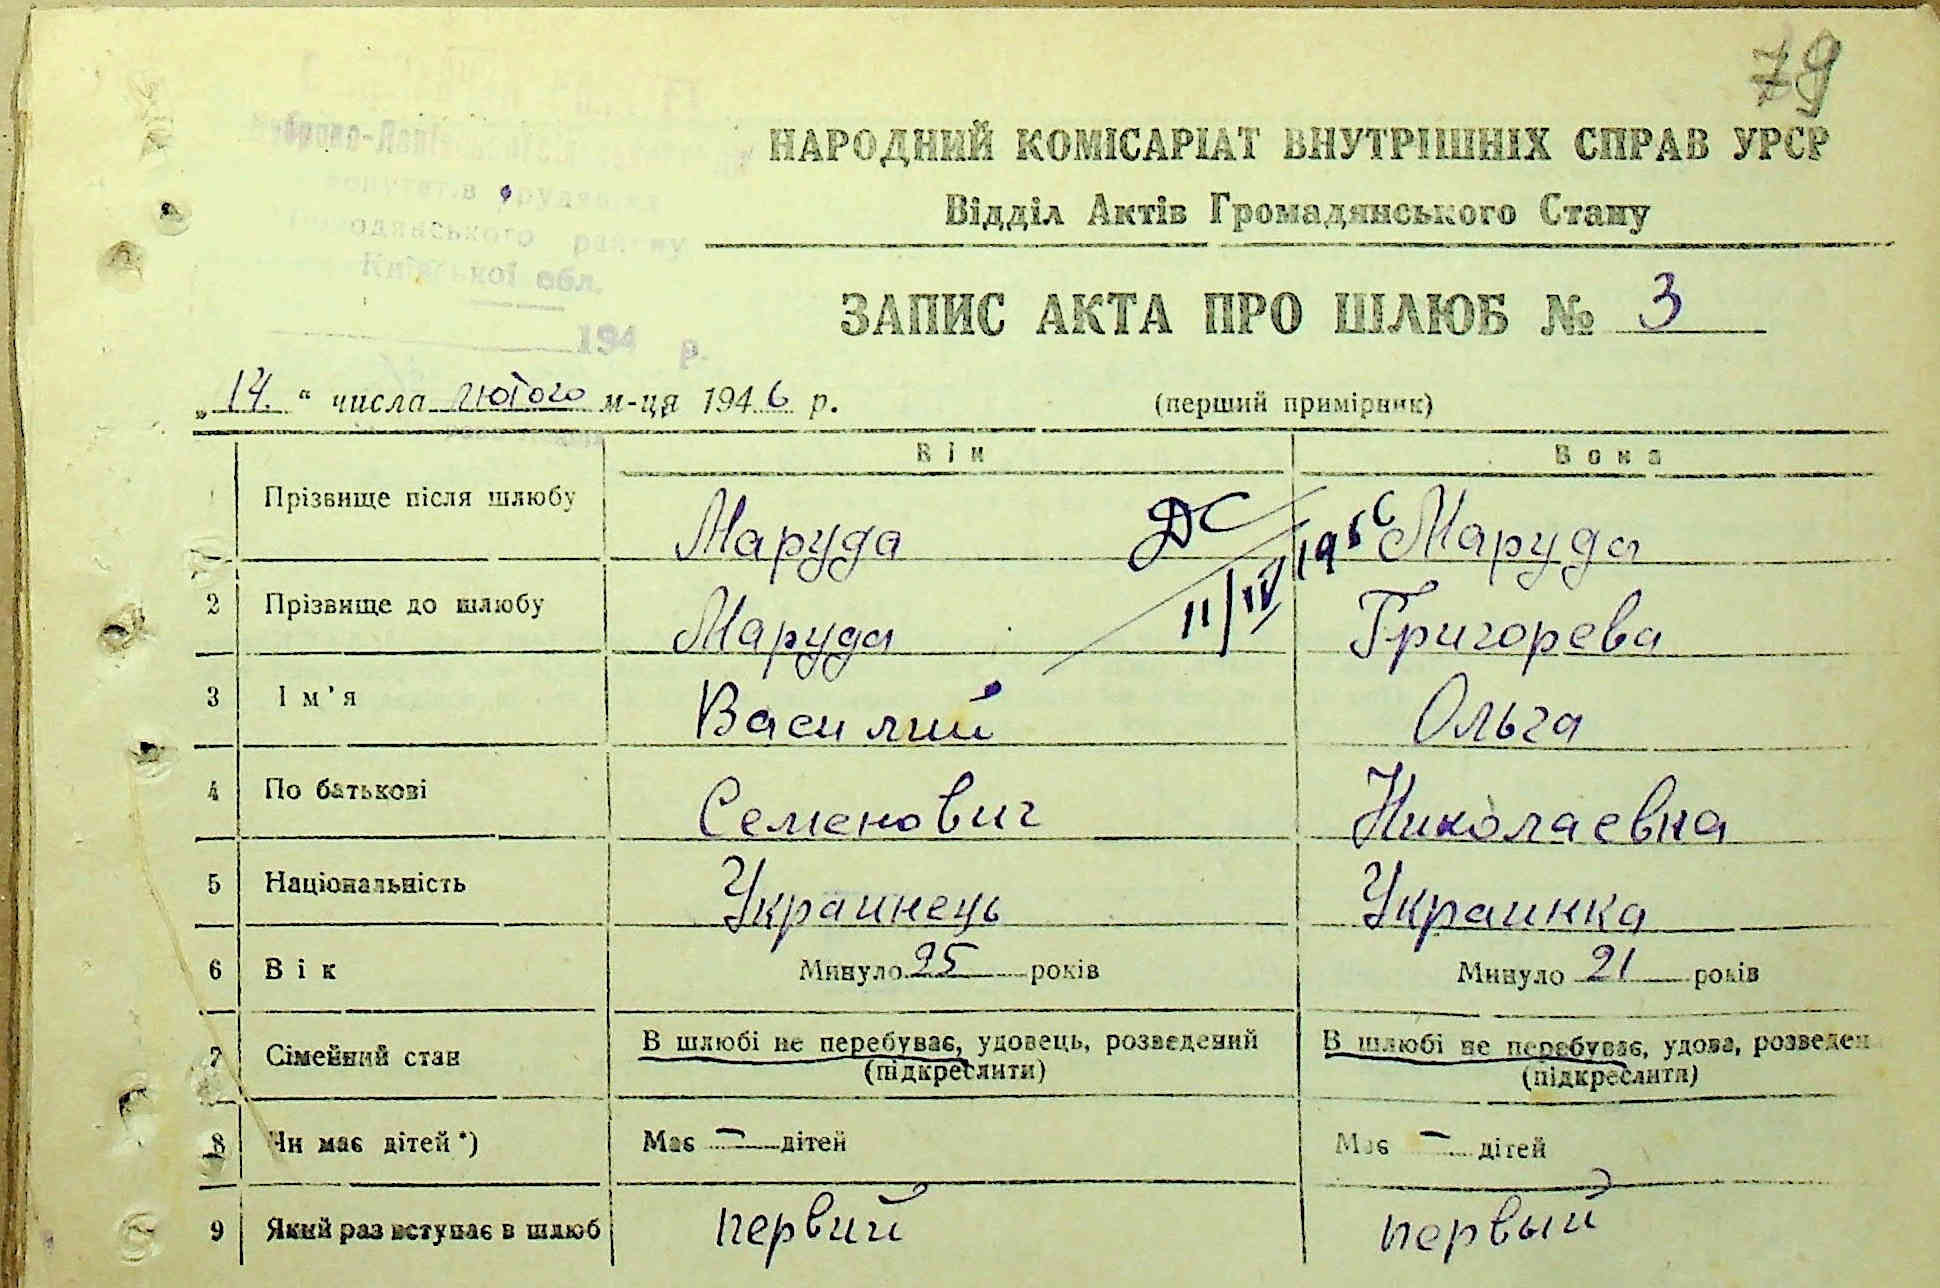 79
НАРОДНИЙ КОМІСАРІАТ ВНУТРІШНІХ СПРАВ УРСР
Відділ Актів Громадянського Стану
районну
Київської обл.
194 р.
ЗАПИС АКТА ПРО ШЛЮБ № 3
„14." числа лютого м-ця 1946 р. (перший примірник)
Він Вона
Прізвище після шлюбу Маруда ДС Маруда
11/IV 1956
2 Прізвище до шлюбу Маруда Григорева
3 Ім'я Василий Ольга
4 По батькові Семенович Николаевна
5 Національність Украинець Украинка
6 Вік Минуло 25 років Минуло 21 років
7 Сімейний стан В шлюбі не перебуває, удовець, розведений В шлюбі не перебуває, удова, розведен
(підкреслити) (підкреслити)
8 Чи має дітей*) Має — дітей Має — дітей
9 Який раз вступає в шлюб первий первый